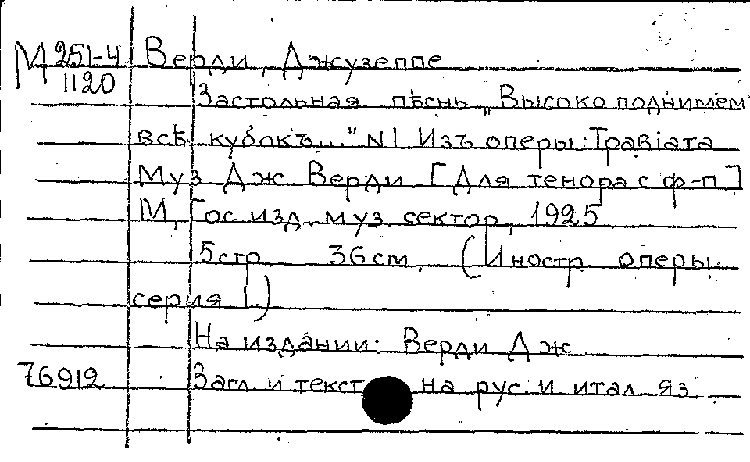 М 251-4 Верди, Джузеппе
1120
Застольная пѣснь „Высоко поднимем
всѣ кубокъ..." N1 Изъ оперы: Травіата
Муз Дж Верди [Для тенора с ф-п]
М, Гос изд. муз. сектор, 1925
5 стр 36 см. (Иностр оперы.
серия I.)
На издании: Верди Дж
76912 Загл и текст на рус. и итал яз